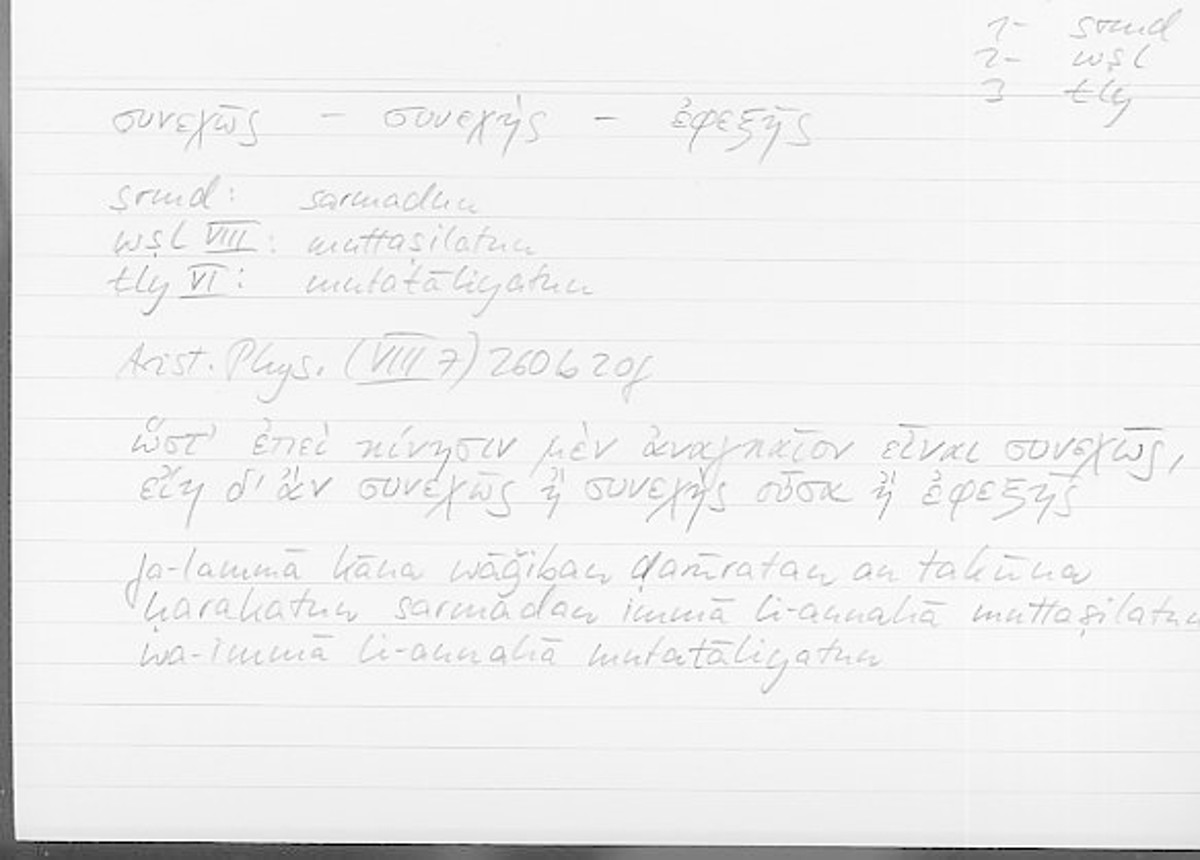 1- srmd
2- wṣl
3 tly
συνεχῶς - συνεχής - ἐφεξῆς
srmd: sarmadun
wṣl VIII: muttaṣilatun
tly VI: mutatāliyatun
Arist. Phys. (VIII 7) 260b20f
ὥστ' ἐπεὶ κίνησιν μὲν ἀναγκαῖον εἶναι συνεχῶς,
εἴη δ' ἂν συνεχῶς ἢ συνεχὴς οὖσα ἢ ἐφεξῆς
fa-lammā kāna wāǧiban ḍarūratan an takūna
ḥarakatun sarmadan immā li-annahā muttaṣilatun
wa-immā li-annahā mutatāliyatun